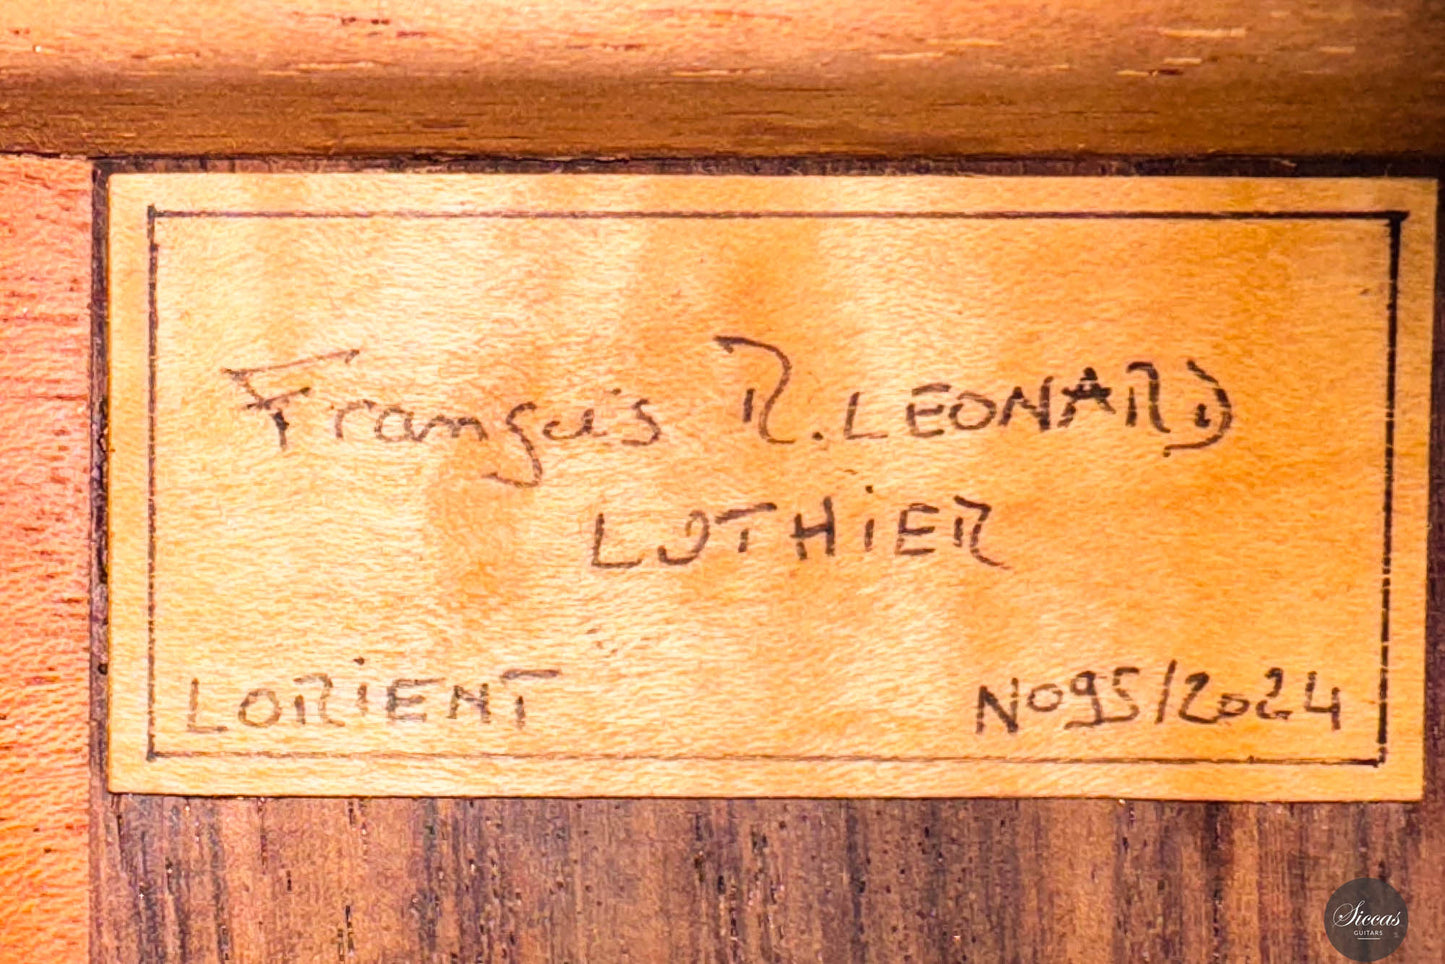 François R. LEONARD
LUTHiER
LORiENT
No95/2024
Siccas
GUITARS